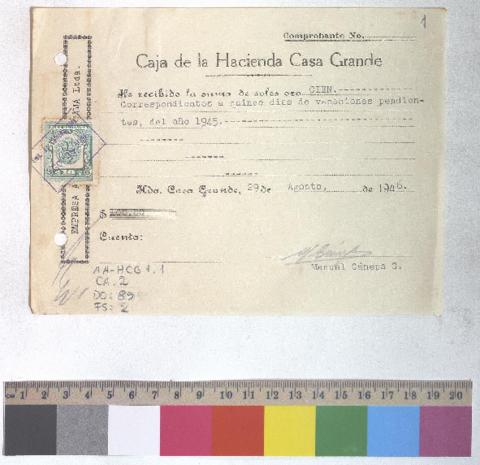 1
Comprobante No.
Caja de la Hacienda Casa Grande
He recibido la suma de soles oro CIEN.
Correspondientes a quince días de vacaciones pendien-
tes, del año 1945.
Hda. Casa Grande, 29 de Agosto, de 1946.
$ 100.00
Cuenta:
Manuel Cánepa S.
EMPRESA A Ltda.
AA-HCG 1.1
CA. 2
DO: 89
FS: 2
cm 1 2 3 4 5 6 7 8 9 10 11 12 13 14 15 16 17 18 19 20